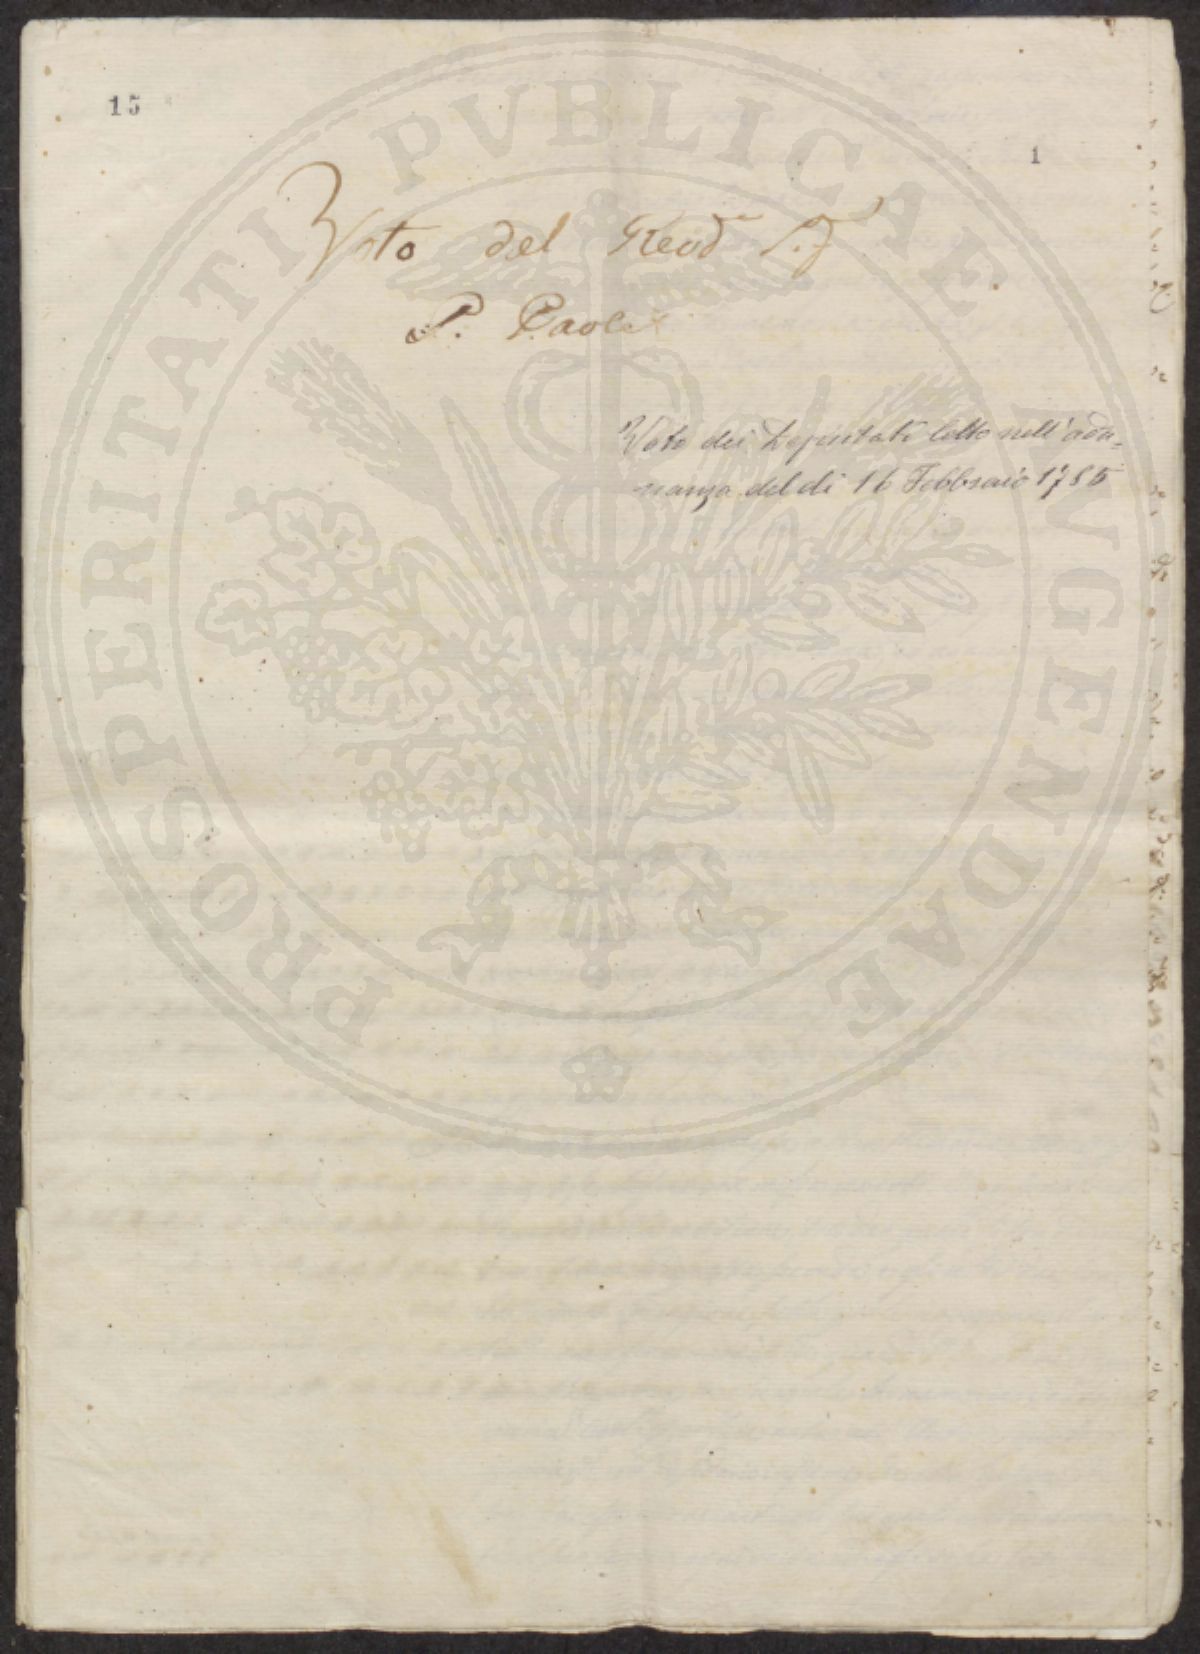 15
1
Voto del Revd
P. Paoli
Voto dei Deputati letto nell'adu=
nanza del di 16 Febbraio 1785
PROSPERITATI PVBLICAE AVGENDAE